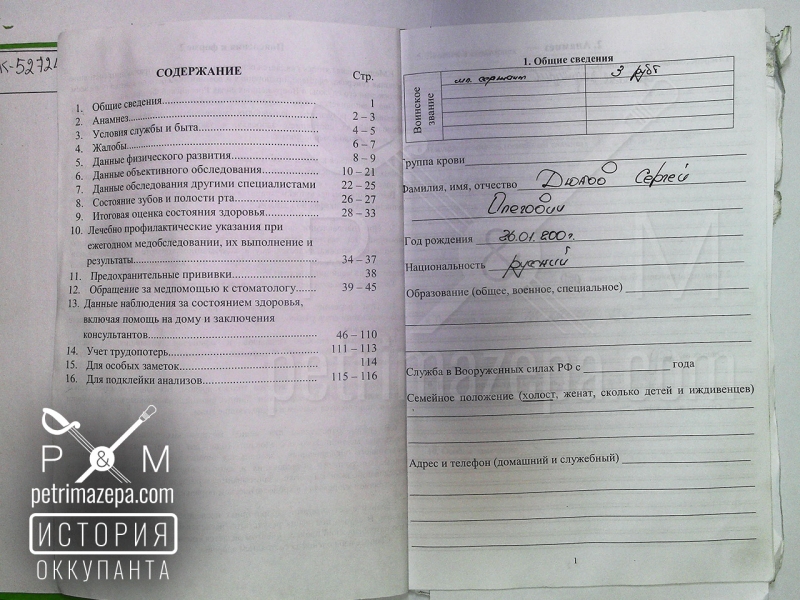 К-52721
СОДЕРЖАНИЕ
Стр.
1. Общие сведения 1
2. Анамнез 2 – 3
3. Условия службы и быта 4 – 5
4. Жалобы 6 – 7
5. Данные физического развития 8 – 9
6. Данные объективного обследования 10 – 21
7. Данные обследования другими специалистами 22 – 25
8. Состояние зубов и полости рта 26 – 27
9. Итоговая оценка состояния здоровья 28 – 33
10. Лечебно профилактические указания при
ежегодном медобследовании, их выполнение и
результаты 34 – 37
11. Предохранительные прививки 38
12. Обращение за медпомощью к стоматологу 39 – 45
13. Данные наблюдения за состоянием здоровья,
включая помощь на дому и заключения
консультантов 46 – 110
14. Учет трудопотерь 111 – 113
15. Для особых заметок 114
16. Для подклейки анализов 115 – 116
1. Общие сведения
Воинское
звание
мл. сержант
Группа крови
Фамилия, имя, отчество Сергей
Олегович
Год рождения
Национальность русский
Образование (общее, военное, специальное)
Служба в Вооруженных силах РФ с года
Семейное положение (холост, женат, сколько детей и иждивенцев)
Адрес и телефон (домашний и служебный)
1
P & M
petrimazepa.com
ИСТОРИЯ
ОККУПАНТА
P & M
petrimazepa.com